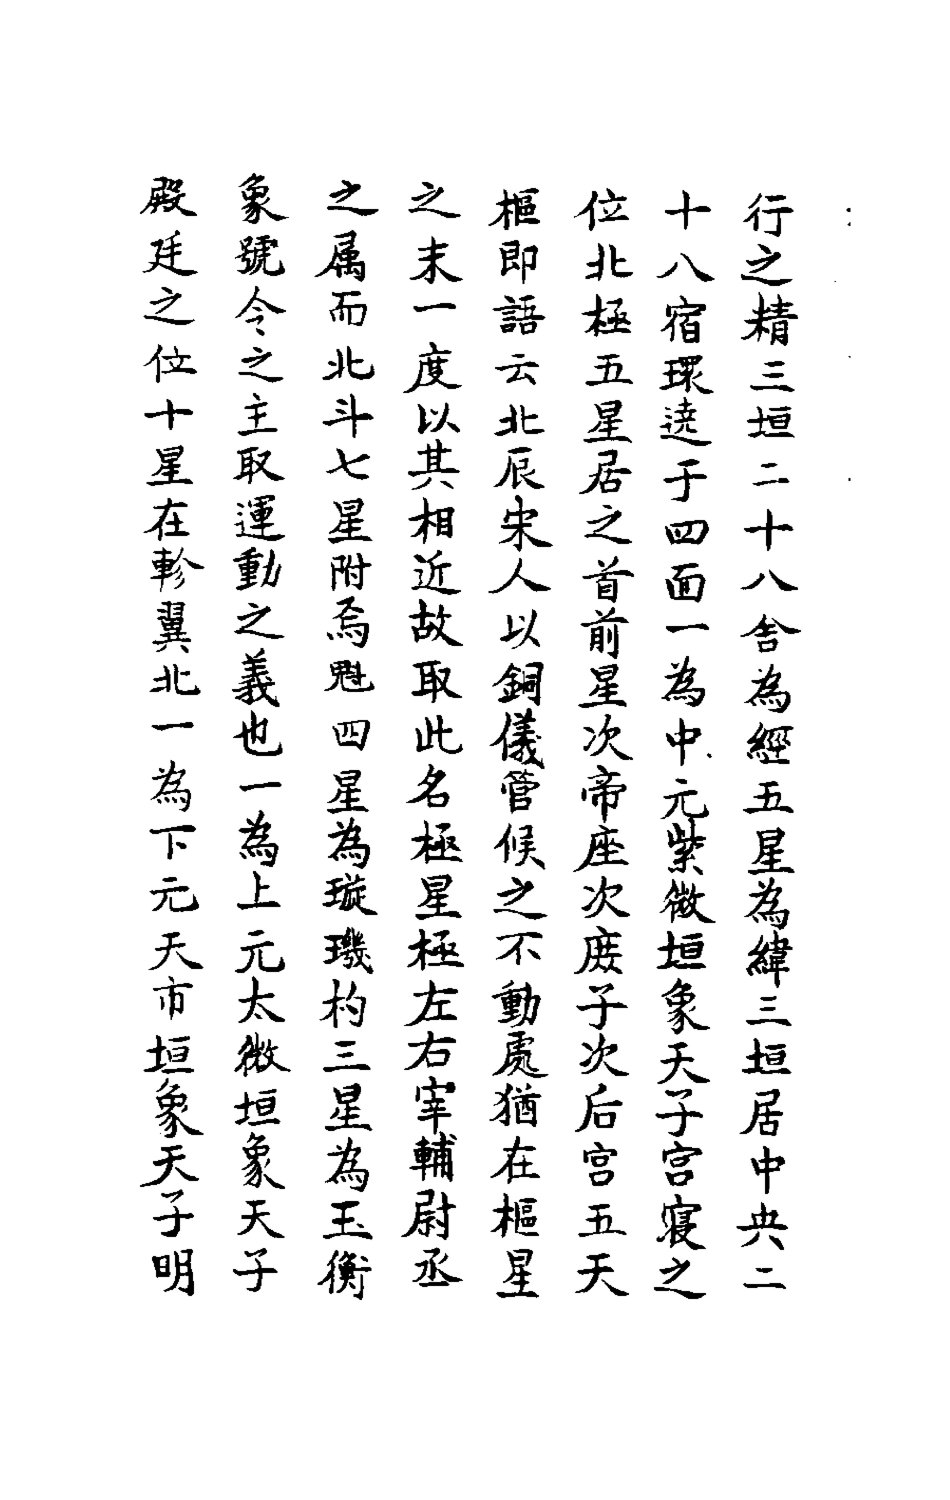 行之精三垣二十八舍為經五星為緯三垣居中央二
十八宿環遶于四面一為中元紫微垣象天子宮寢之
位北極五星居之首前星次帝座次庶子次后宮五天
樞即語云北辰宋人以銅儀管候之不動處猶在樞星
之末一度以其相近故取此名極星極左右宰輔尉丞
之属而北斗七星附焉魁四星為璇璣杓三星為玉衡
象號令之主取運動之義也一為上元太微垣象天子
殿廷之位十星在軫翼北一為下元天市垣象天子明